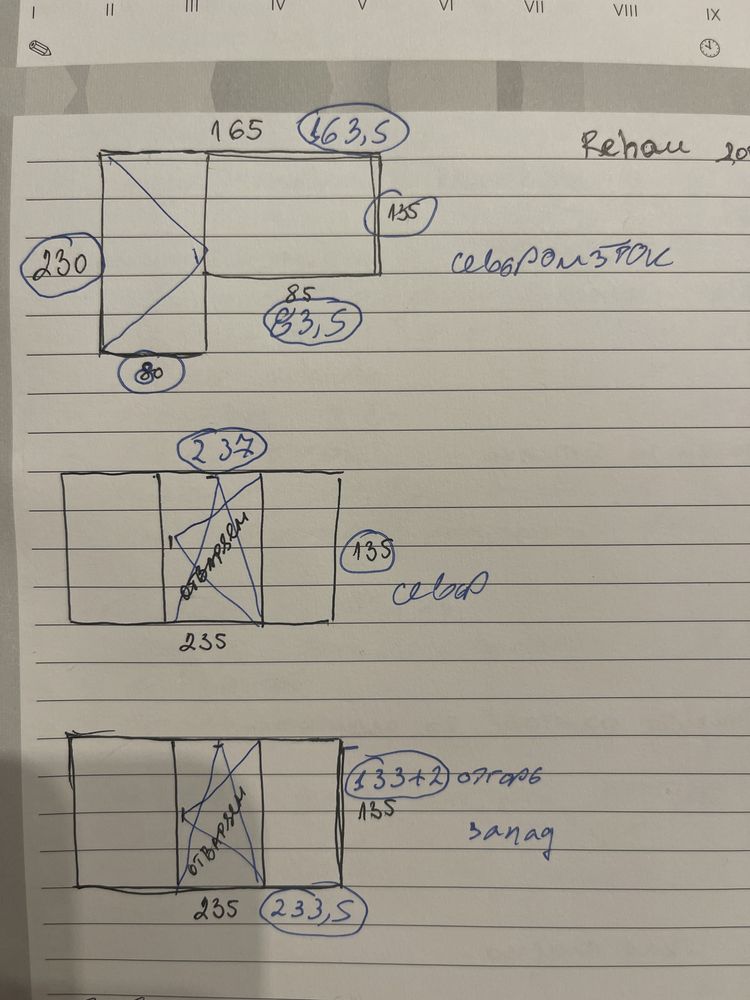 I II III IV V VI VII VIII IX
165 163,5
Rehau
135
230
североизток
85
83,5
80
237
отварzем
135
север
235
133+2 отгоръ
135
отварzем
запад
235 233,5